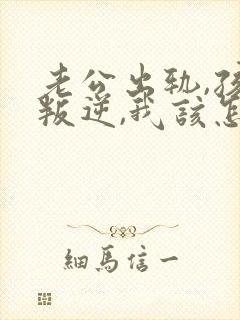 老公出轨,孩
叛逆,我该怎
細馬信一